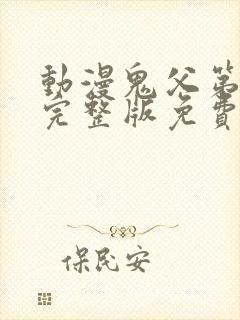 動漫鬼父第
完整版免費
保民安